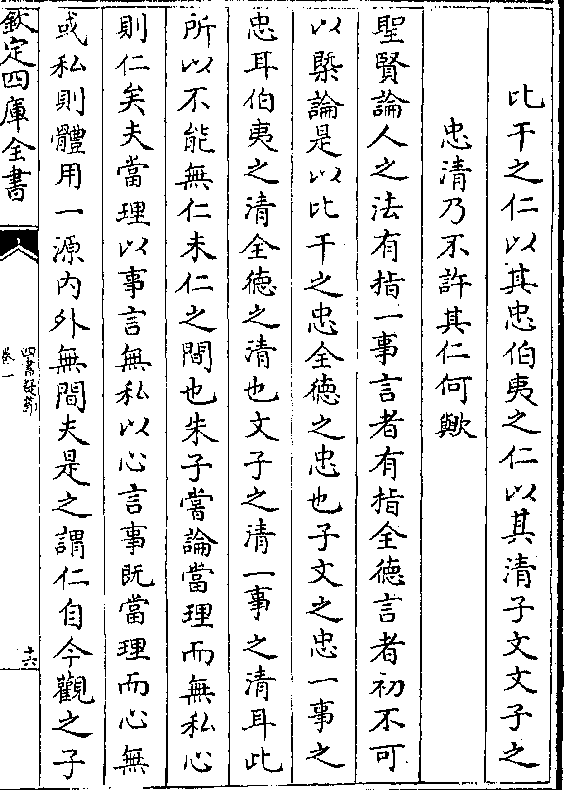 比干之仁以其忠伯夷之仁以其清子文文子之
忠清乃不許其仁何歟
聖賢論人之法有指一事言者有指全徳言者初不可
以槩論是以比干之忠全徳之忠也子文之忠一事之
忠耳伯夷之清全徳之清也文子之清一事之清耳此
所以不能無仁未仁之間也朱子嘗論當理而無私心
則仁矣夫當理以事言無私以心言事既當理而心無
或私則體用一源内外無間夫是之謂仁自今觀之子
欽定四庫全書
四書疑節
卷一
十六